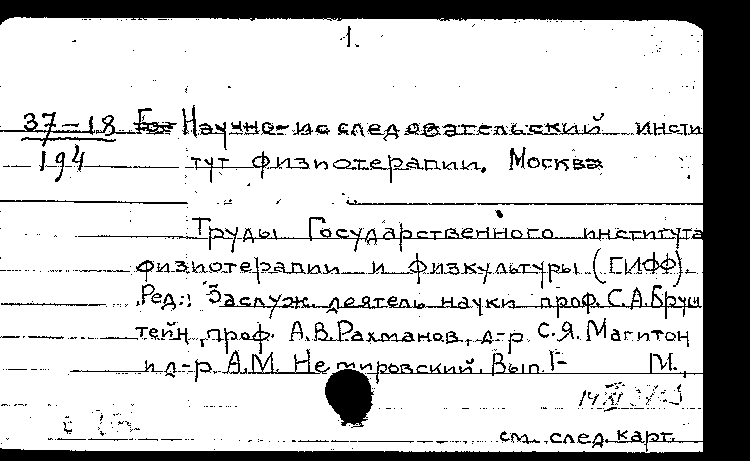 1.
37-18 Гос Научно-исследовательский инсти
194 тут физиотерапии. Москва
Труды Государственного института
физиотерапии и физкультуры (ГИФФ).
Ред.: Заслуж. деятель науки проф. С.А.Бруш
тейн, проф. А.В.Рахманов, д-р. С.Я. Магитон
и д-р. А.М. Немировский. Вып. I- М.,
14 XI
см. след. карт.